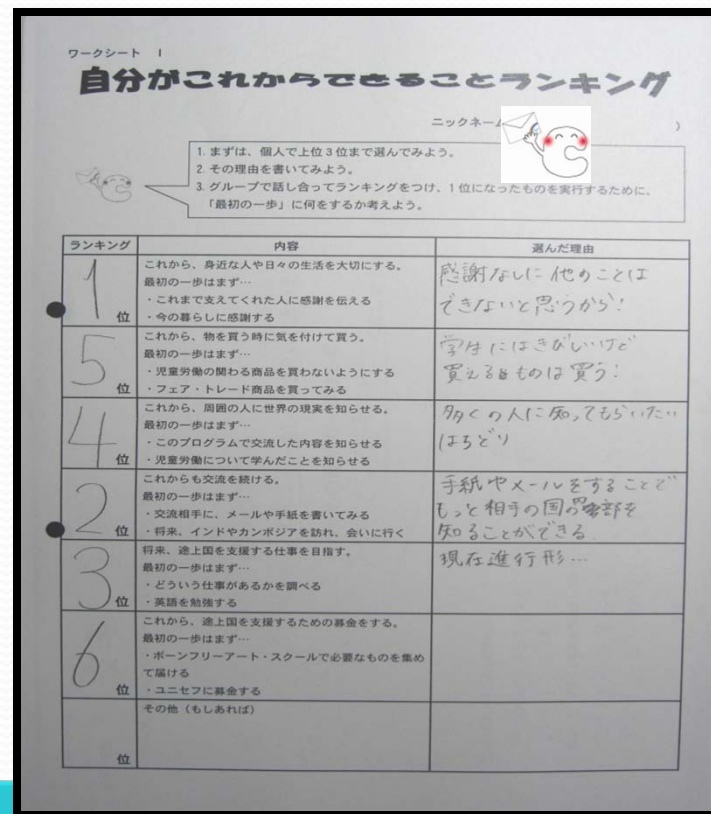 ワークシート 1
自分がこれからできることランキング
ニックネーム )
1. まずは、個人で上位3位まで選んでみよう。
2. その理由を書いてみよう。
3. グループで話し合ってランキングをつけ、1位になったものを実行するために、
「最初の一歩」に何をするか考えよう。
ランキング 内容 選んだ理由
1位
これから、身近な人や日々の生活を大切にする。
最初の一歩はまず…
・これまで支えてくれた人に感謝を伝える
・今の暮らしに感謝する
感謝なしに他のことは
できないと思うから!
5位
これから、物を買う時に気を付けて買う。
最初の一歩はまず…
・児童労働の関わる商品を買わないようにする
・フェア・トレード商品を買ってみる
学生にはきびしいけど
買えるものは買う!
4位
これから、周囲の人に世界の現実を知らせる。
最初の一歩はまず…
・このプログラムで交流した内容を知らせる
・児童労働について学んだことを知らせる
多くの人に知ってもらいたい
はちどり
2位
これからも交流を続ける。
最初の一歩はまず…
・交流相手に、メールや手紙を書いてみる
・将来、インドやカンボジアを訪れ、会いに行く
手紙やメールをすることで
もっと相手の国の部を
知ることができる
3位
将来、途上国を支援する仕事を目指す。
最初の一歩はまず…
・どういう仕事があるかを調べる
・英語を勉強する
現在進行形…
6位
これから、途上国を支援するための募金をする。
最初の一歩はまず…
・ボーンフリーアート・スクールで必要なものを集め
て届ける
・ユニセフに募金する
位
その他（もしあれば）